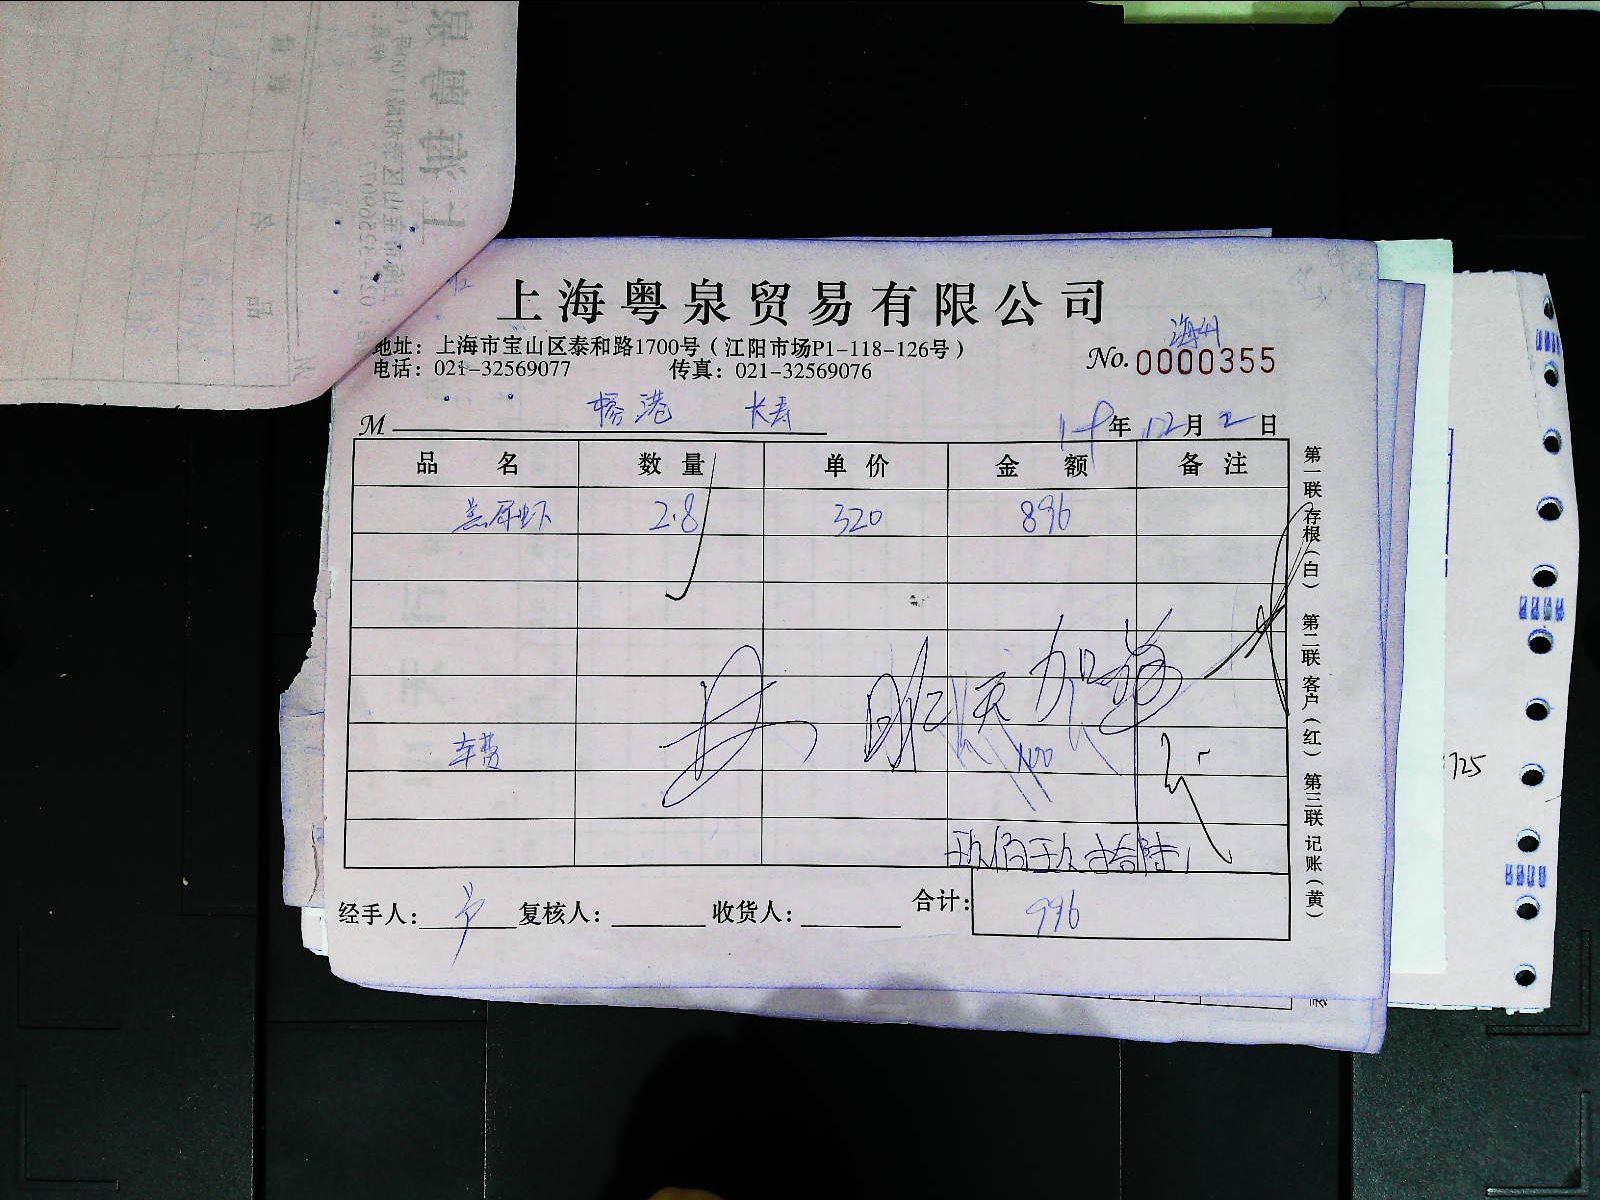 上海粤泉贸易有限公司
地址：上海市宝山区泰和路1700号（江阳市场P1-118-126号）
电话：021-32569077 传真：021-32569076
No.0000355
M 长寿
年12月2日
品名 数量 单价 金额 备注
2.8 320 896
昨天加
车费 100
玖佰玖拾陆
经手人： 复核人： 收货人： 合计：996
第一联存根（白） 第二联客户（红） 第三联记账（黄）
725